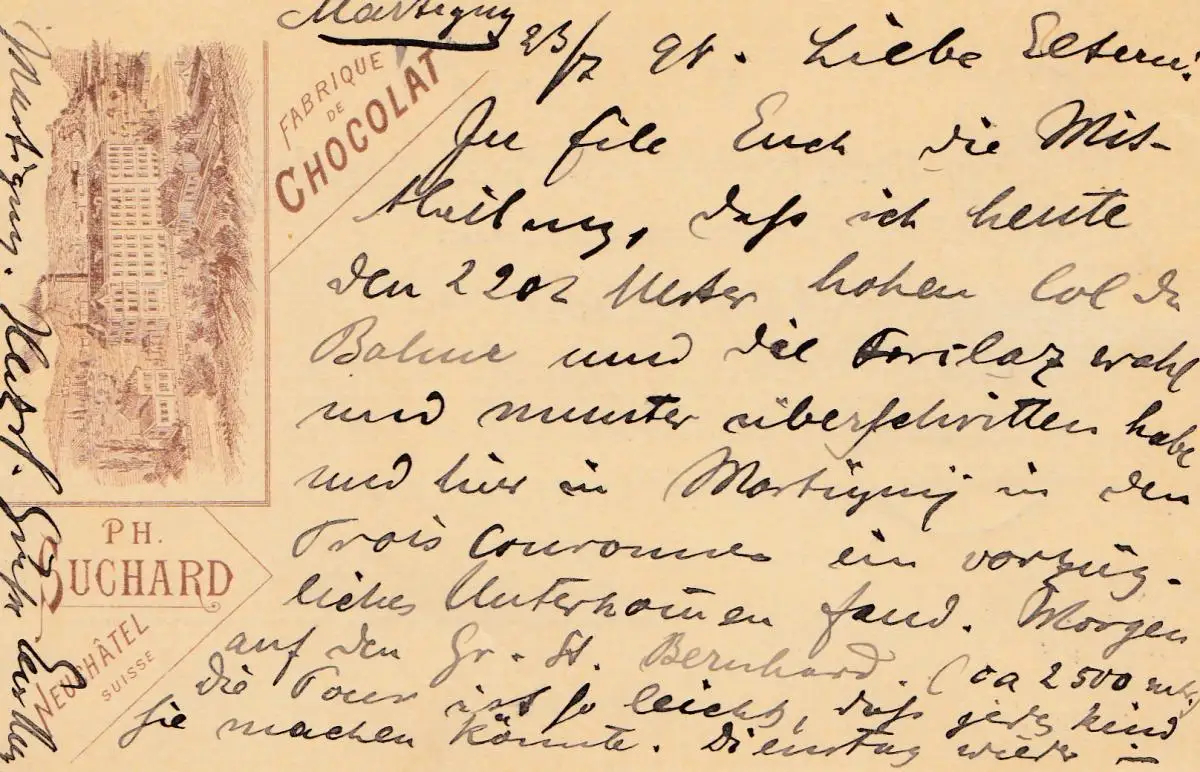 Martigny 23/7 98. Liebe Eltern!
In Eile Euch die Mit-
theilung, daß ich heute
den 2202 Meter hohen Col de
Balme und die Forclaz wohl
und munter überschritten habe
und hier in Martigny in den
Trois Couronnes ein vorzüg-
liches Unterkom̄en fand. Morgen
auf den Gr. St. Bernhard. (ca 2500 mtr.)
die Tour ist so leicht, daß jedes Kind
sie machen könnte. Dienstag wieder in
Martigny. Herzl. Grüße
FABRIQUE
DE
CHOCOLAT
PH.
SUCHARD
NEUCHÂTEL
SUISSE